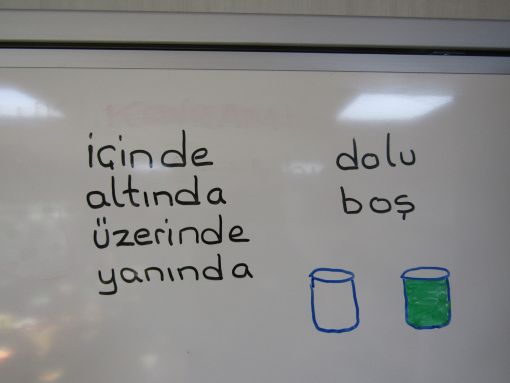 içinde
altında
üzerinde
yanında
dolu
boş